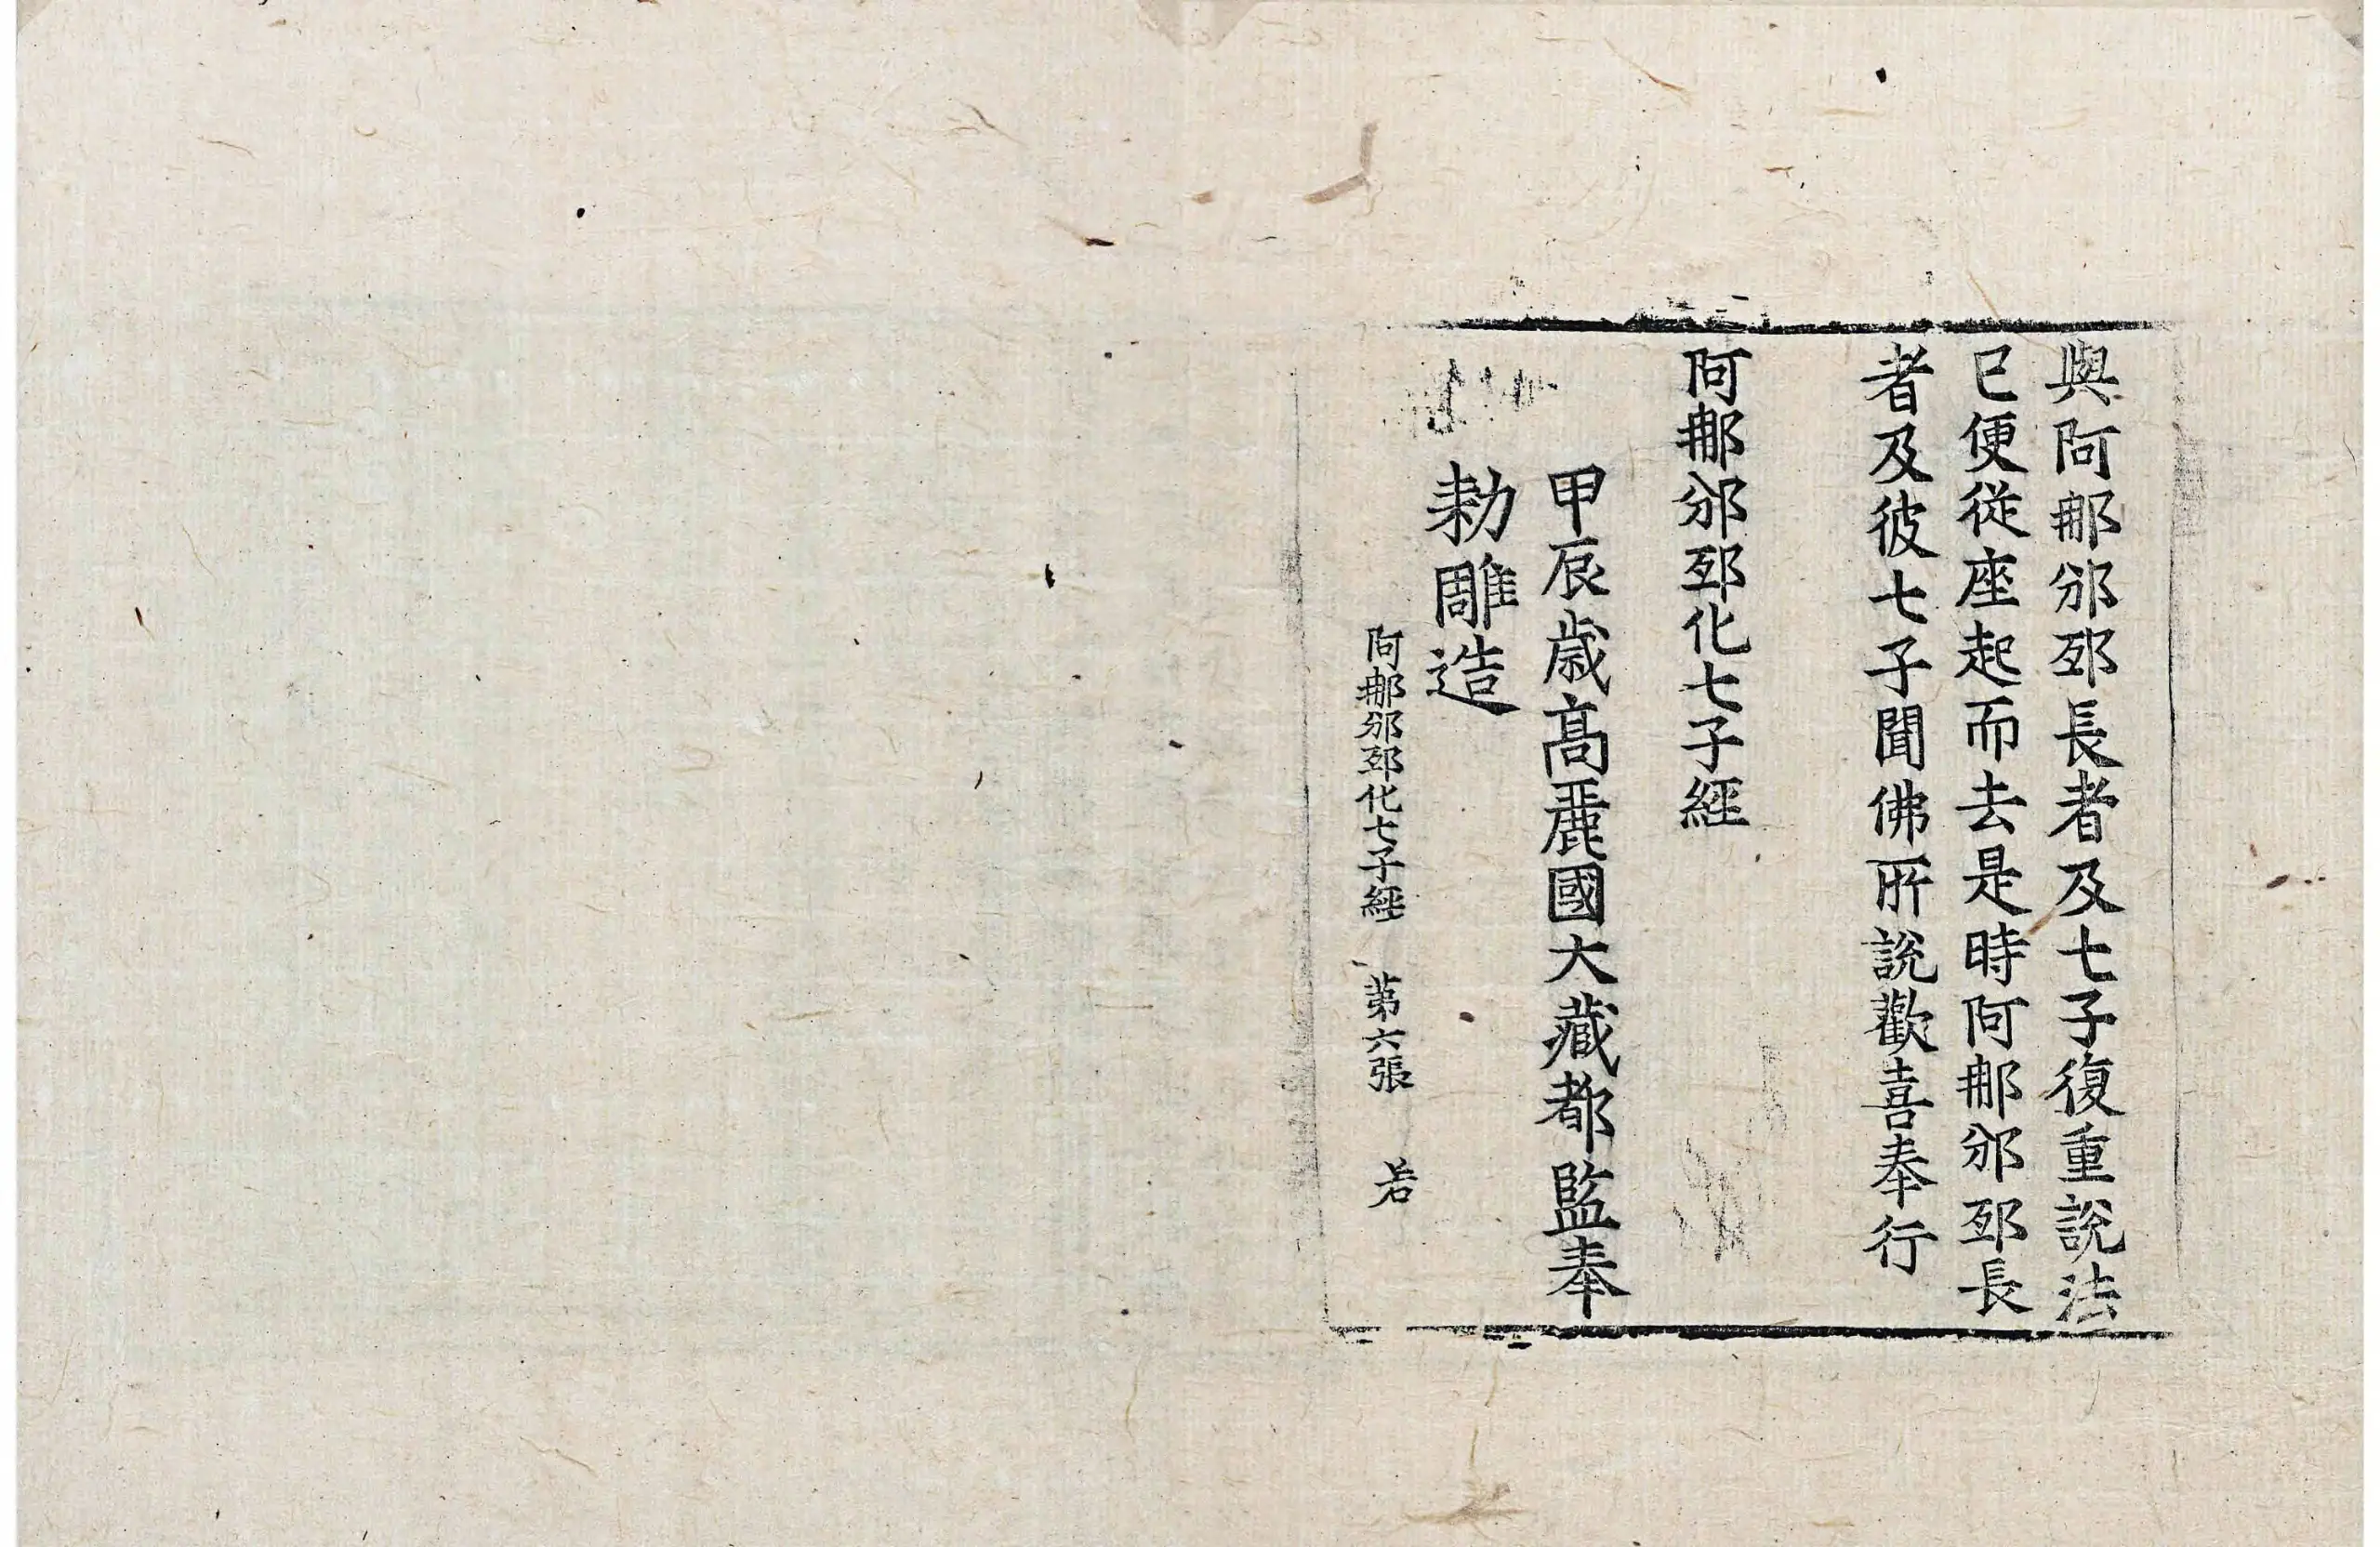 與阿那邠邸長者及七子復重說法
已便從座起而去是時阿那邠邸長
者及彼七子聞佛所說歡喜奉行
阿那邠邸化七子經
甲辰歲高麗國大藏都監奉
勑雕造
阿那邠邸化七子經 第六張 若